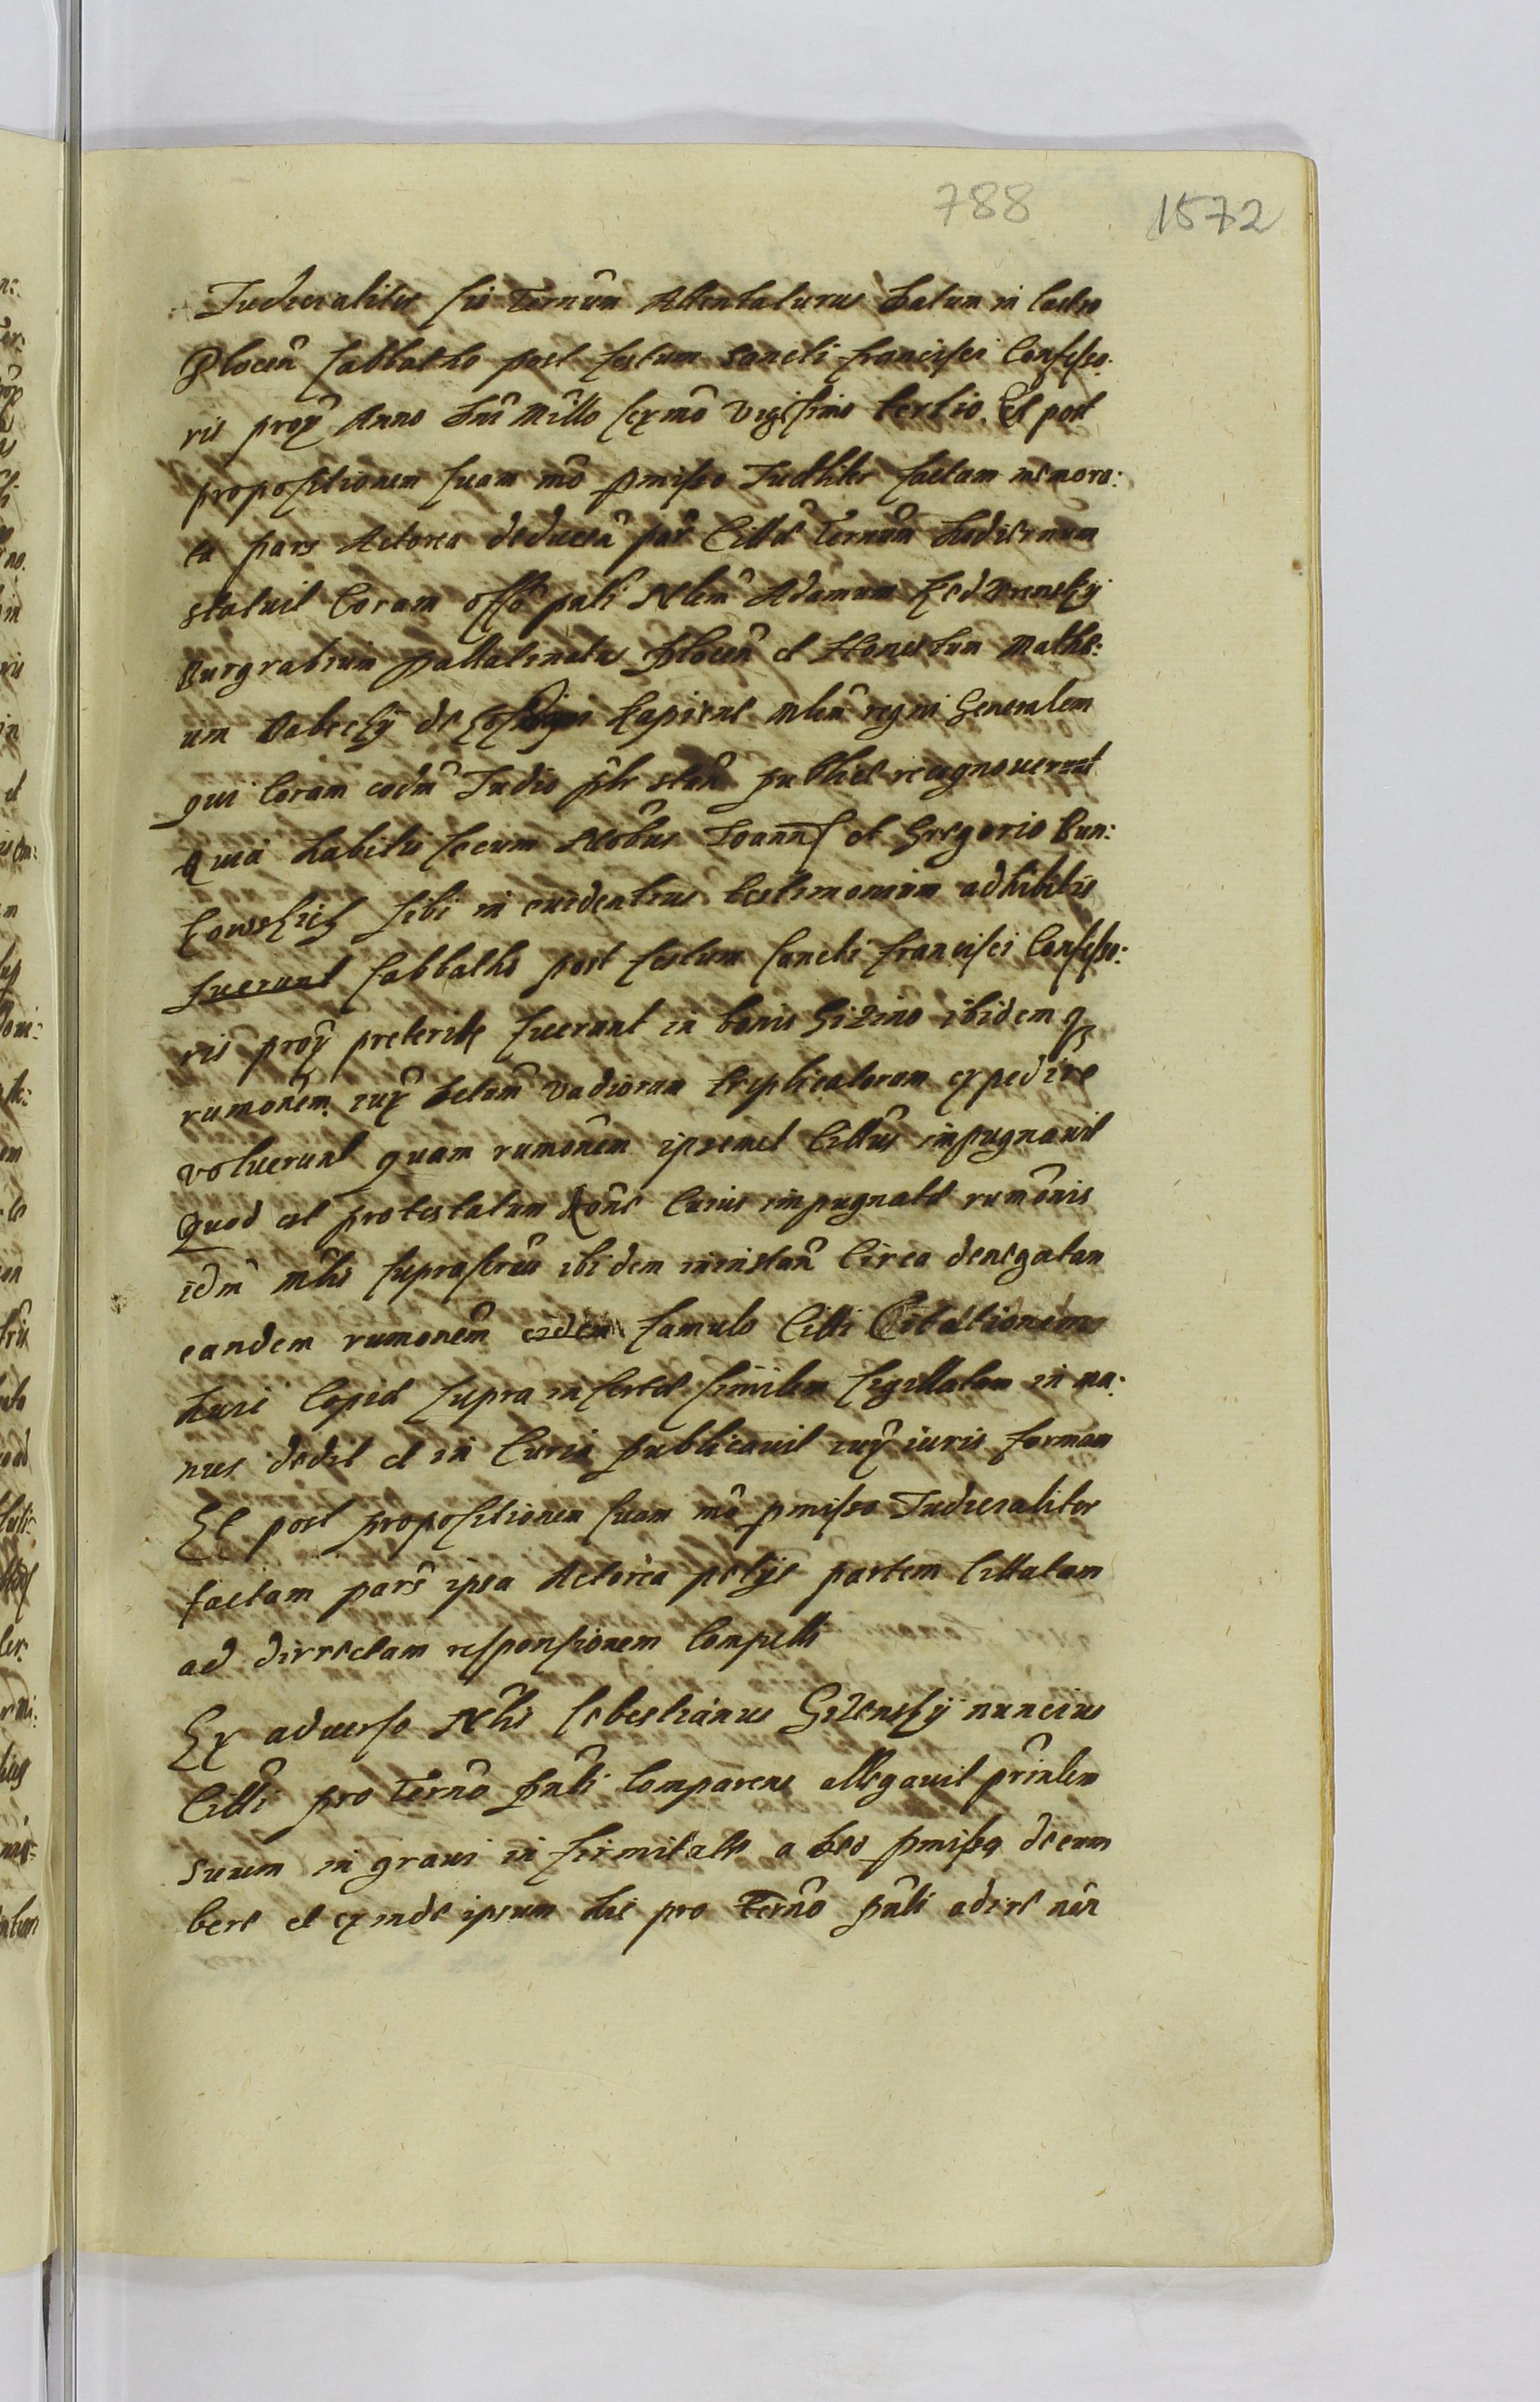 788 1572
Judicialiter sis terminum Attentaturus Datum in Castro
Plocen̄ sabbatho post festum Sancti Francisci Confesso:
ris prox̄ Anno Dn̄i Mill̄o sexmō Vigesimo tertio. Et post
propositionem suam mō p̄misso Judl̄iter factam memora:
ta pars Actorea deducen̄ par̄ Citt̄e Termn̄m Hodiernum
statuit Coram off̄o pn̄ti Nbl̄em Adamum
Burgrabium pallatinatus Plocen̄ et Honestum Mathe:
um de Lapiene Mlēm regni Generalem
qui Coram eodm̄ Judio p̄lr stan̄ publice recognouerunt
Quia habitis secum Nob̄us Joann̄e et Gregorio Bun:
kowskich sibi in euidentius testimonium adhibitis
fuerunt sabbatho post festum Sancti Francisci Confesso:
ris prox̄ preterite fuerunt in bonis Gizino ibidem q
rumōnem iux̄ Vadiorum triplicatorum expedire
voluerunt quam rumōnem ipsemet Citt̄us impugnauit
Quod est protestatum Rōne Cuius impugnate rumōnis
idm̄ Ml̄is suprascr̄us ibidem in instan̄ Circa denegatam
eandem rumōnem eidem famulo Citt̄i Citationem
huic Copie supra inserte similem sigillatam in ma:
nus dedit et in Curia publicauit iux̄ iuris formam
Et post propositionem suam mō p̄misso Judicialiter
factam pars ipsa Actorea petijt partem Cittatam
ad dirrectam responsionem Compelli
Ex aduerso Nbl̄is Sebestianus Gizinsky nuncius
Citt̄i pro Termn̄o pn̄ti Comparens allegauit prin̄lem
suum in graui in firmitate a Deo p̄missa decum
bere et exinde ipsum hic pro termn̄o pn̄ti adire non